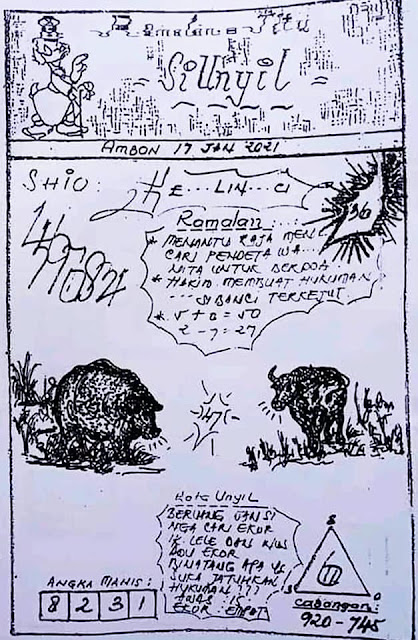 SiUnyil
AMBON 17 JAN 2021
SHIO:
E....LIN...CI
36
Ramalan....:
* MENANTU RAJA MENC
CARI PENDETA WA...
NITA UNTUK BERDOA
* HAKIM MEMBUAT HUKUMAN
SI BANCI TERKETUT
* 5 + 8 = 50
2 - 7 = 27
47
Kata UNYIL
BERUANG
CARI EKOR
IK. LELE DARI
EKOR
BINATANG APA YG
SUKA JATUHKAN
HUKUMAN ???
AWAS
EKOR : EMPAT
ANGKA MANIS:
8 2 3 1
8
6
3 0
Cabangan:
920 - 745